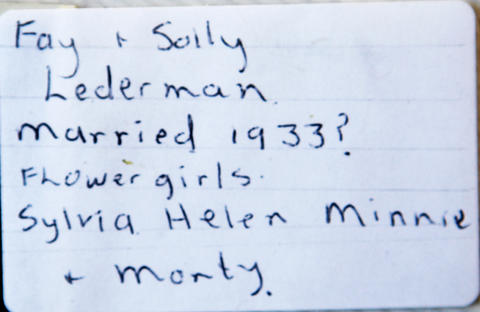 Fay + Solly
Lederman.
Married 1933?
Flower girls.
Sylvia Helen Minnie
+ Monty.